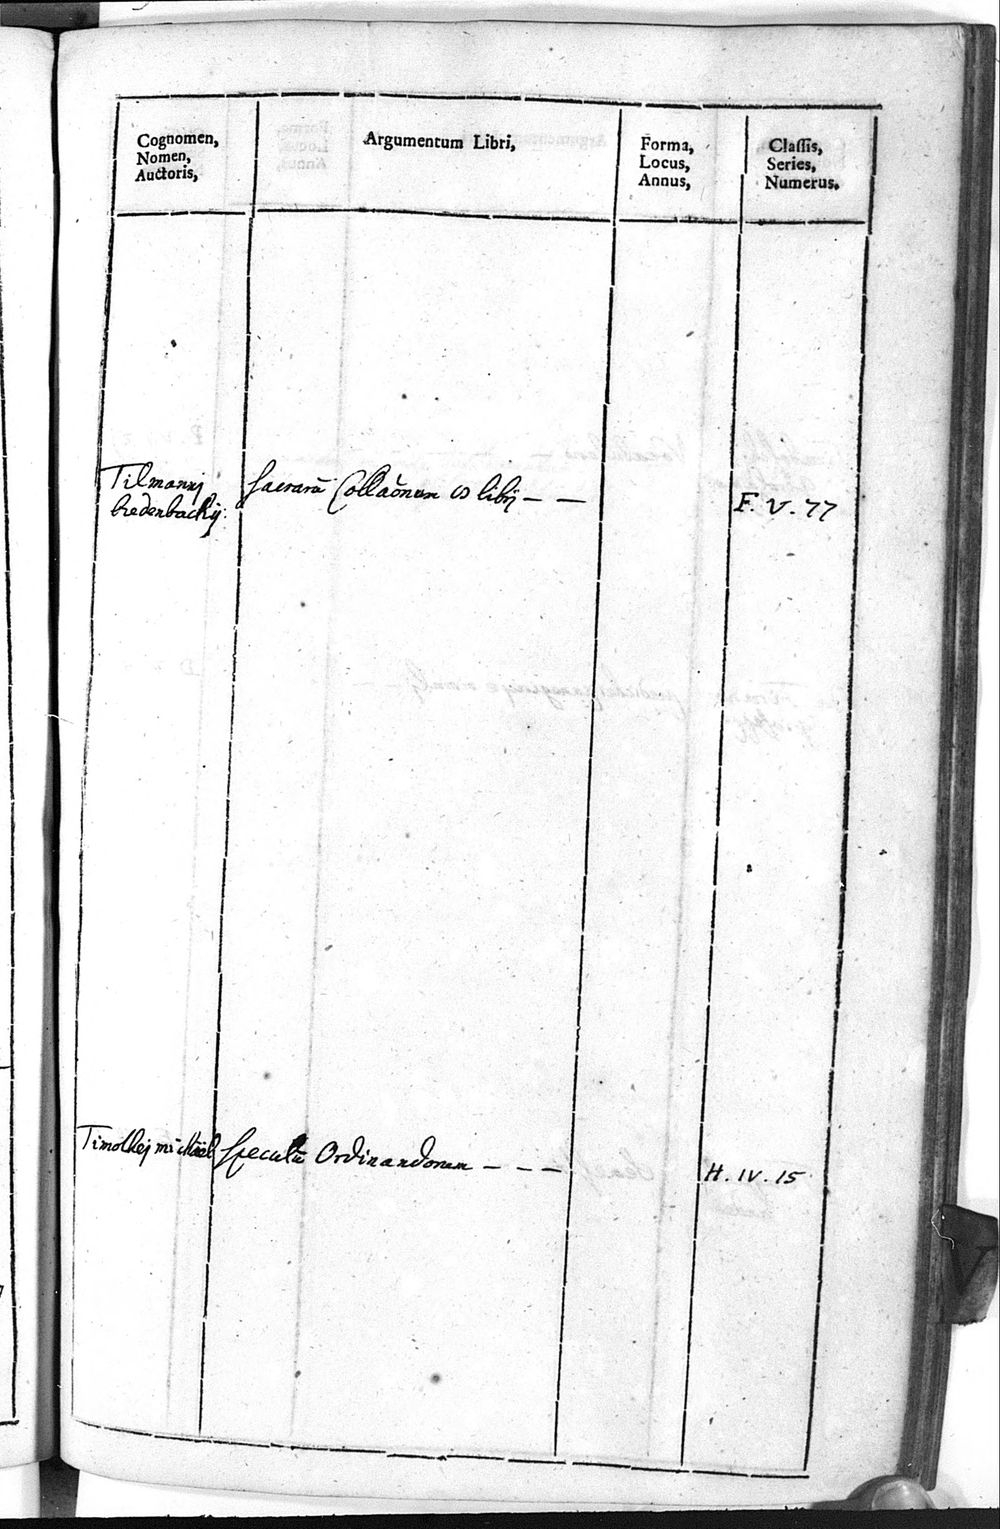 Cognomen,
Nomen,
Auctoris,
Argumentum Libri,
Forma,
Locus,
Annus,
Classis,
Series,
Numerus.
Tilmannj
bredenbachij:
sacrarū Collaōnum libri — —
F. V. 77
Timothej michael speculū Ordinandorum - - -
H. IV. 15
V